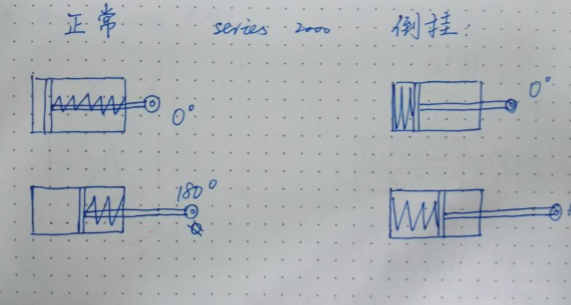 正常 series 2000 倒挂:
0°
0°
180°